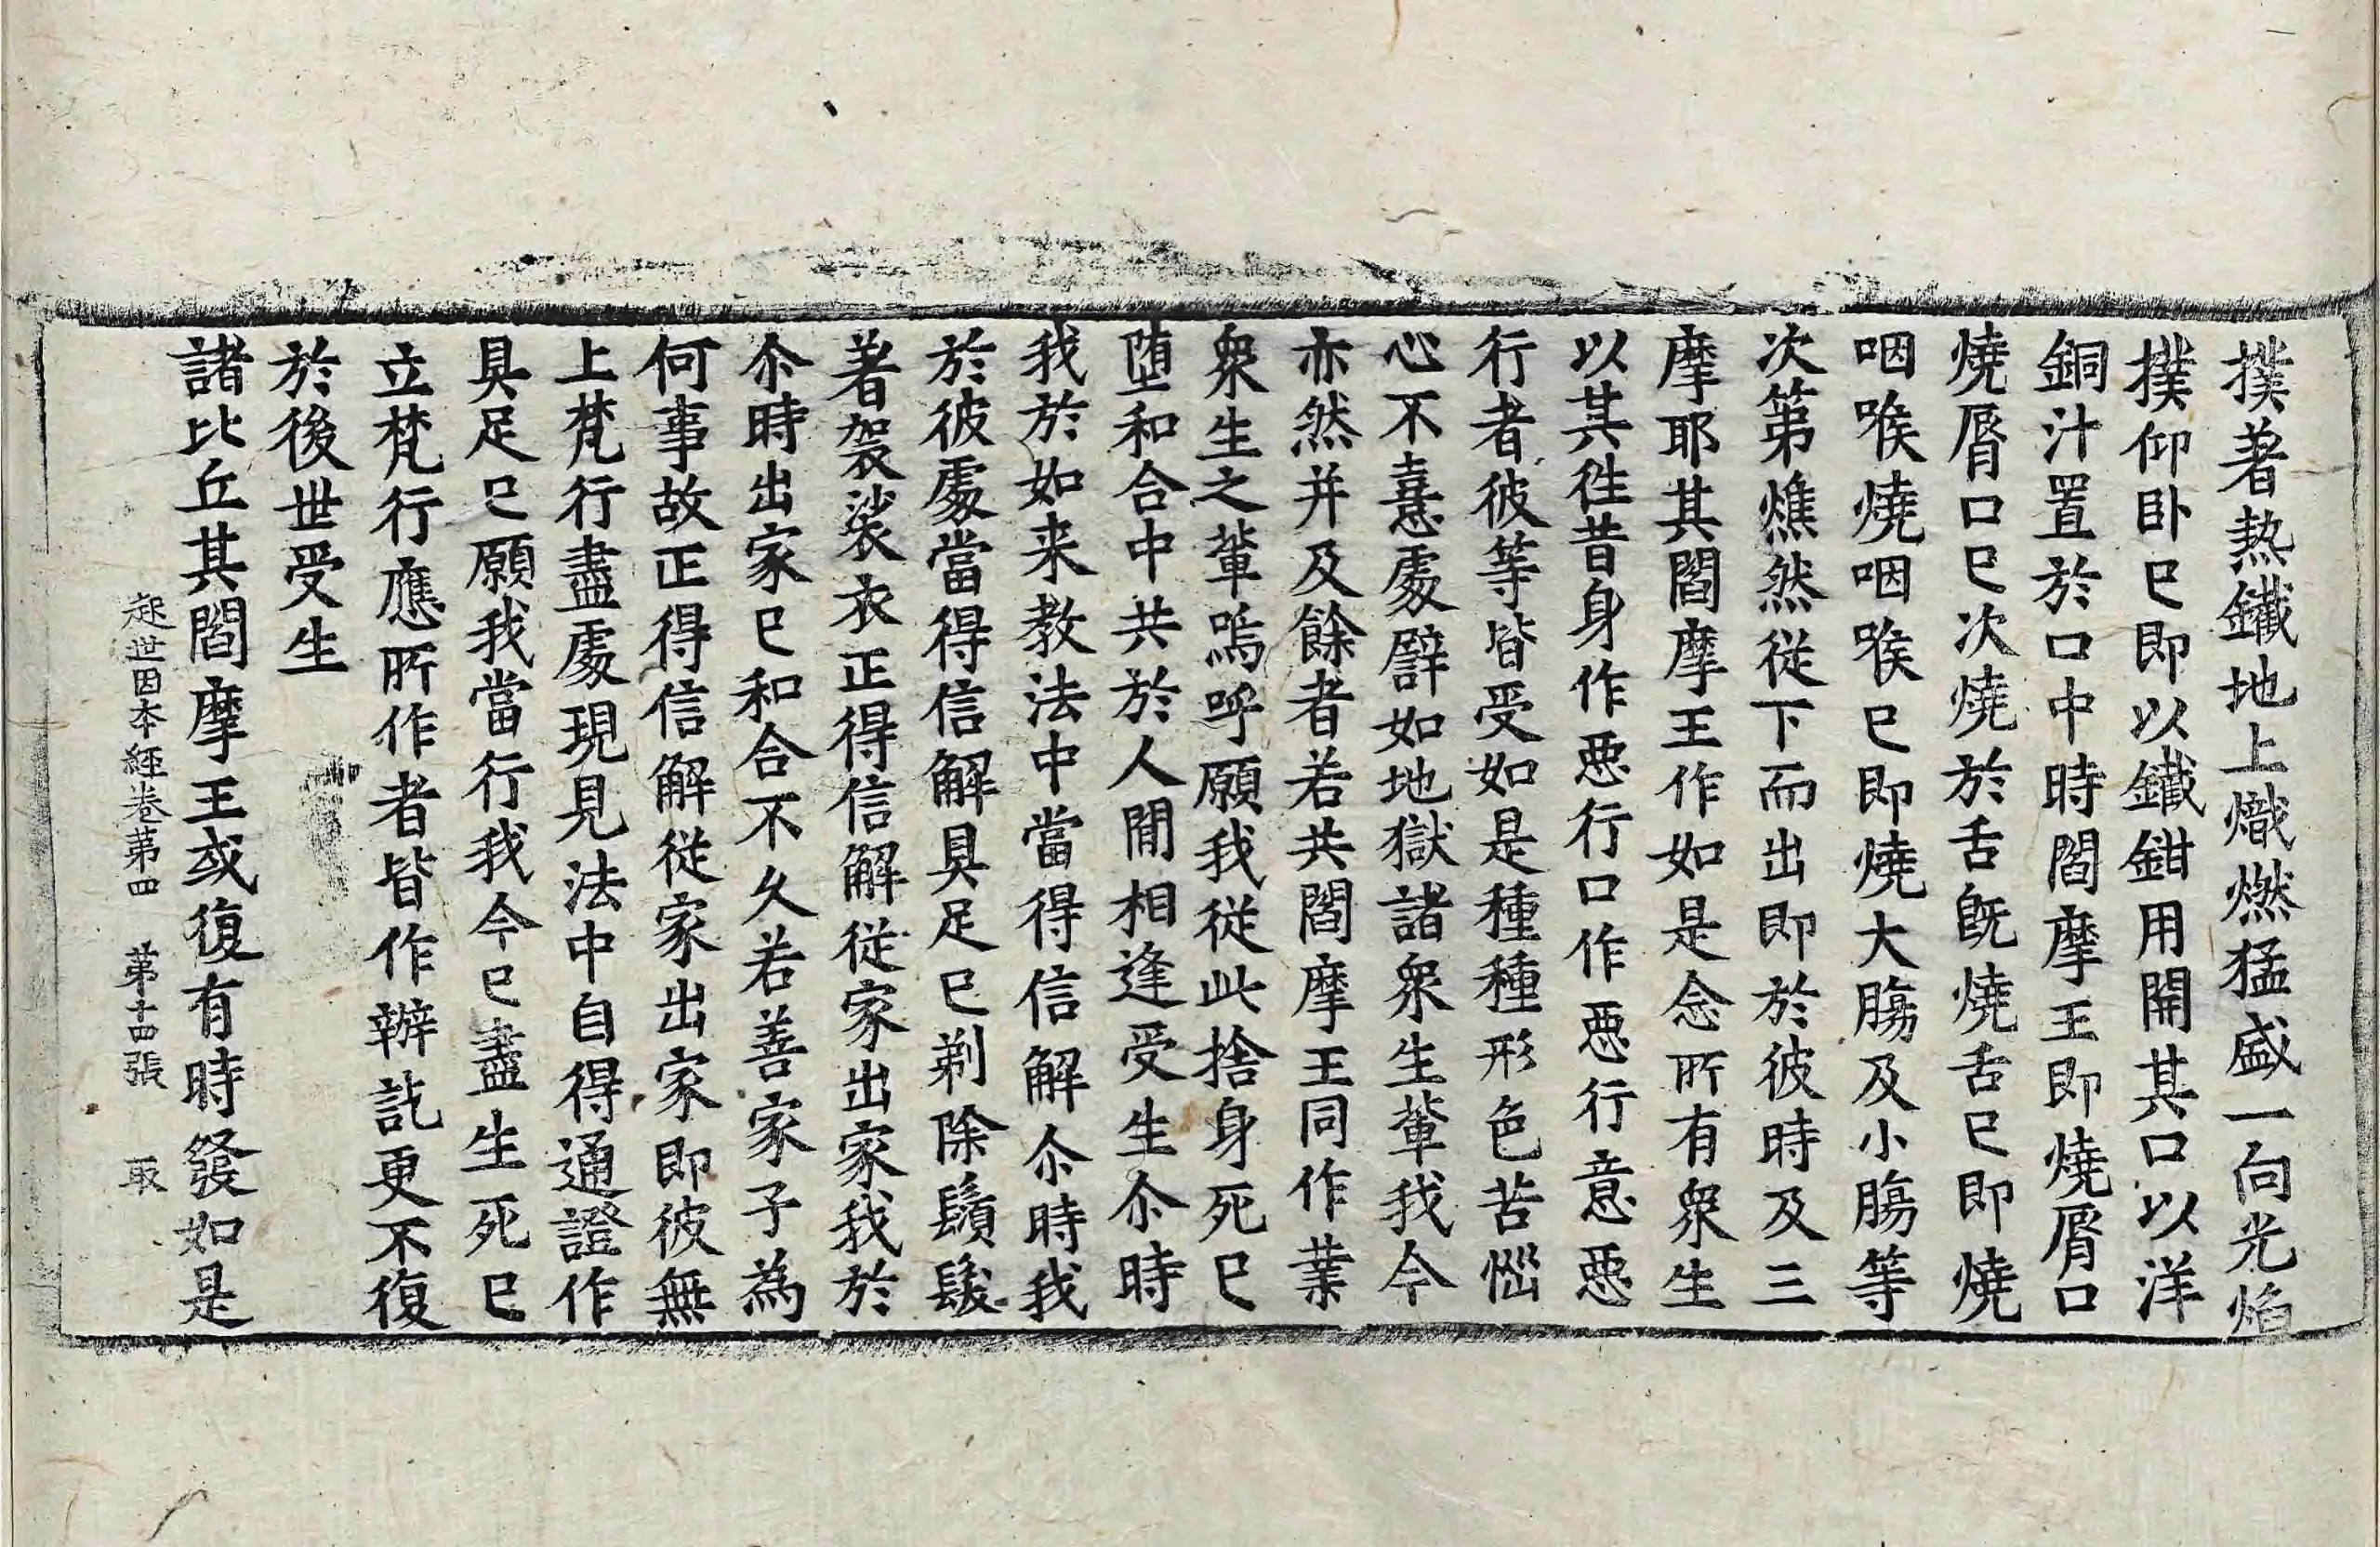 撲著熱鐵地上熾燃猛盛一向光焰
撲仰卧已即以鐵鉗用開其口以洋
銅汁置於口中時閻摩王即燒脣口
燒脣口已次燒於舌旣燒舌已即燒
咽喉燒咽喉已即燒大膓及小膓等
次第燋然從下而出即於彼時及三
摩耶其閻摩王作如是念所有衆生
以其徃昔身作惡行口作惡行意惡
行者彼等皆受如是種種形色苦惱
心不憙處譬如地獄諸衆生輩我今
亦然并及餘者若共閻摩王同作業
衆生之輩嗚呼願我從此捨身死已
墮和合中共於人閒相逢受生尒時
我於如来教法中當得信解尒時我
於彼處當得信解具足已剃除鬚髮
著袈裟衣正得信解從家出家我於
尒時出家已和合不久若善家子為
何事故正得信解從家出家即彼無
上梵行盡處現見法中自得通證作
具足已願我當行我今已盡生死已
立梵行應所作者皆作辦訖更不復
於後世受生
諸比丘其閻摩王或復有時發如是
起世因本經卷第四　第十四張　取